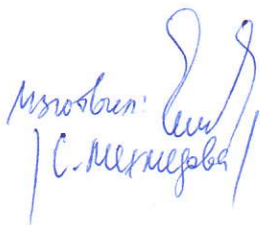 Изготвил:
/С. Мехмедова/